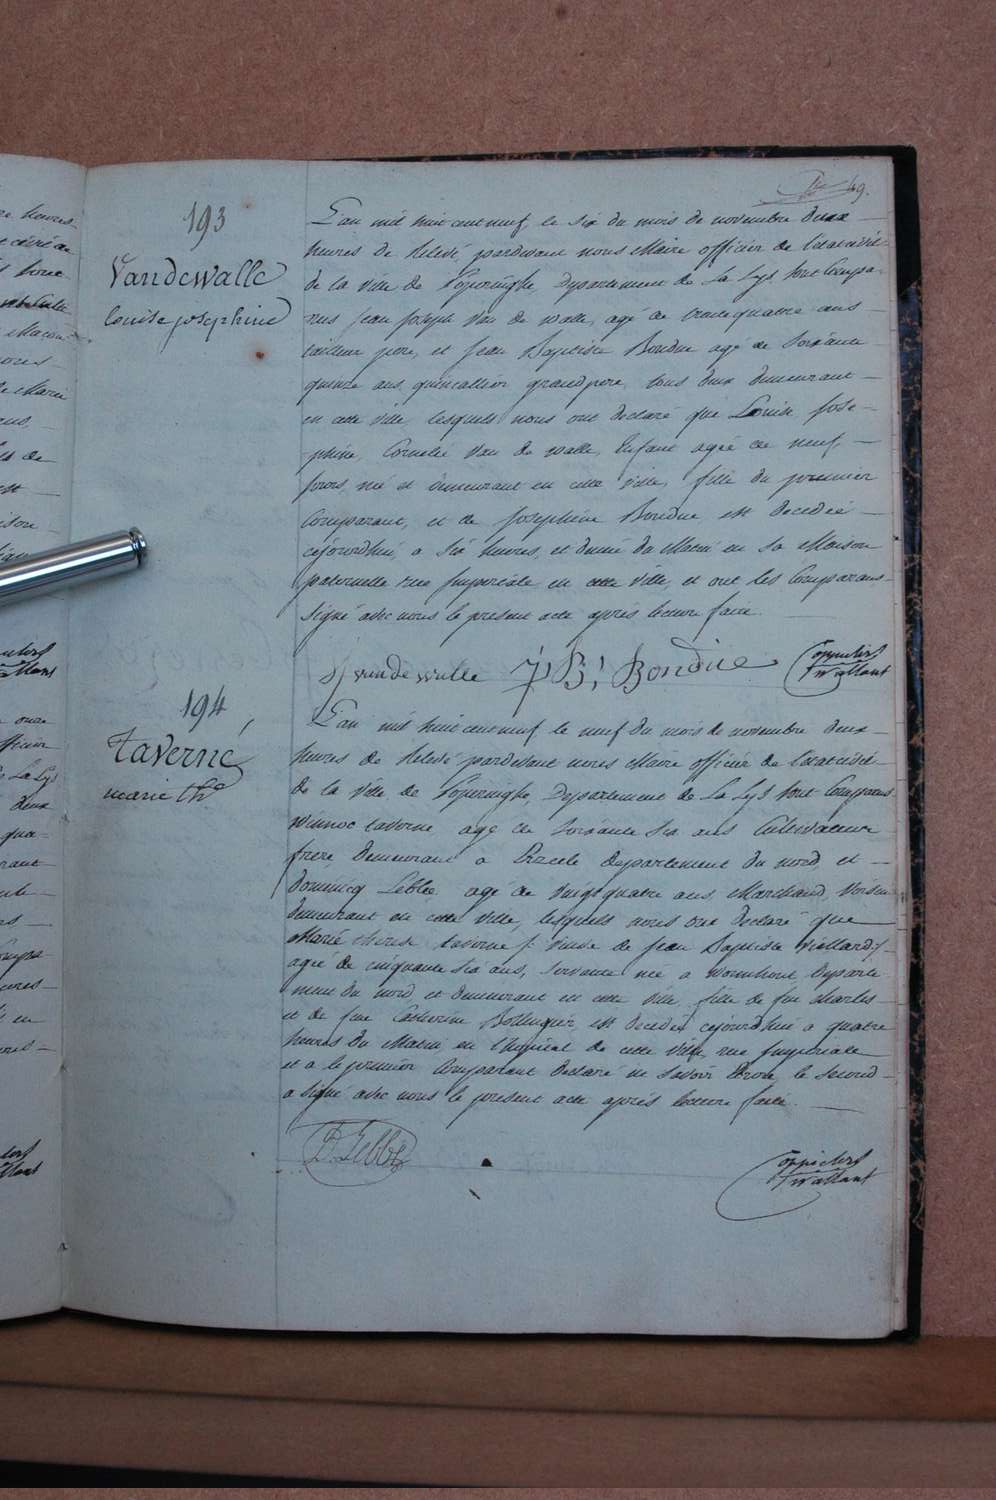 49.
193
Vandewalle
Louise josephine
L'an mil huit cent neuf, le six du mois de novembre deux
heures de Relevé, pardevant nous Maire officier de l'etat civil
de la ville de Poperinghe, Departement de La Lys, sont Compa-
rus jean joseph Van de walle, agé de trente quatre ans
tailleur pere, et jean Baptiste Bondue agé de soixante
quinze ans, quincallier grandpere, tous deux demeurant
en cette ville, lesquels nous ont declaré que Louise jose-
phine, Cornelie Van de walle, Enfant agée de neuf
jours, né et demeurant en cette ville, fille du premier
Comparant, et de josephine Bondue est decedée
cejourdhui, a six heures, et demie du Matin en sa Maison
paternelle rue Imperiale en cette ville, et ont les Comparans
signé avec nous le present acte après lecture faite
J vandewalle J: B: Bondue
194
Taverne
marie thé
L'an mil huit cent neuf le neuf du mois de novembre deux
heures de Relevé pardevant nous Maire officier de l'etat civil
de la ville de Poperinghe, Departement de La Lys sont Comparus
Winnoc taverne agé de soixante six ans Cultivateur
frere demeurant a departement du nord, et
Dominicq Lebbe, agé de vingt quatre ans Marchand, voisin
demeurant en cette ville, lesquels nous ont declaré que
Marie therese taverne veuve de jean Baptiste
agée de cinquante six ans, servante née a wormhout Departe
ment du nord et demeurant en cette ville, fille de feu charles
et de feue Catherine est decedée cejourdhui a quatre
heures du Matin, en l'hopital de cette ville, rue Imperiale
et a le premier Comparant declaré ne savoir Ecrire, le second
a signé avec nous le present acte après lecture faite
D. Lebbe